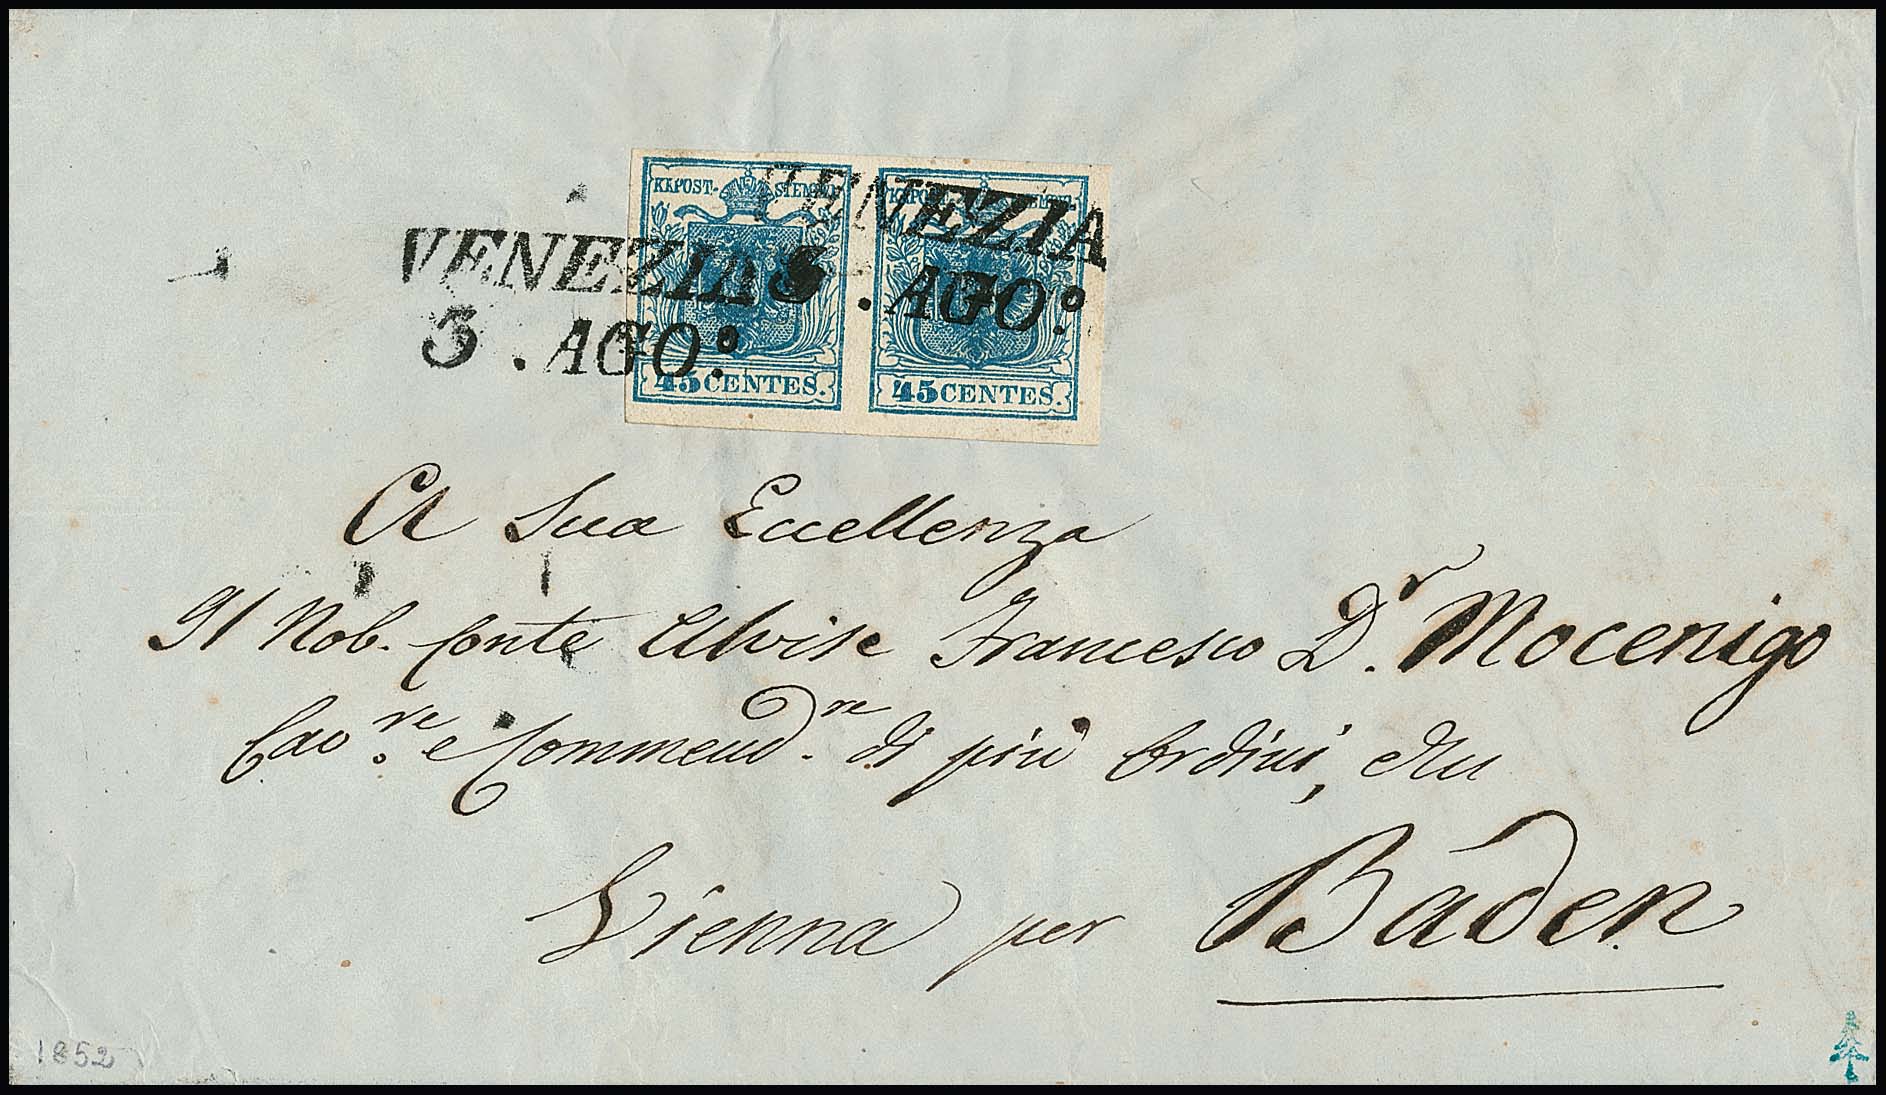 KKPOST-STEMPEL KKPOST-STEMPEL
VENEZIA VENEZIA
3. AGO: 3. AGO:
45 CENTES. 45 CENTES.
A Sua Eccellenza
Il Nob. Conte Alvise Francesco D.r Mocenigo
Cav.re e Commend.re di più Ordini, etc
Vienna per Baden
1852